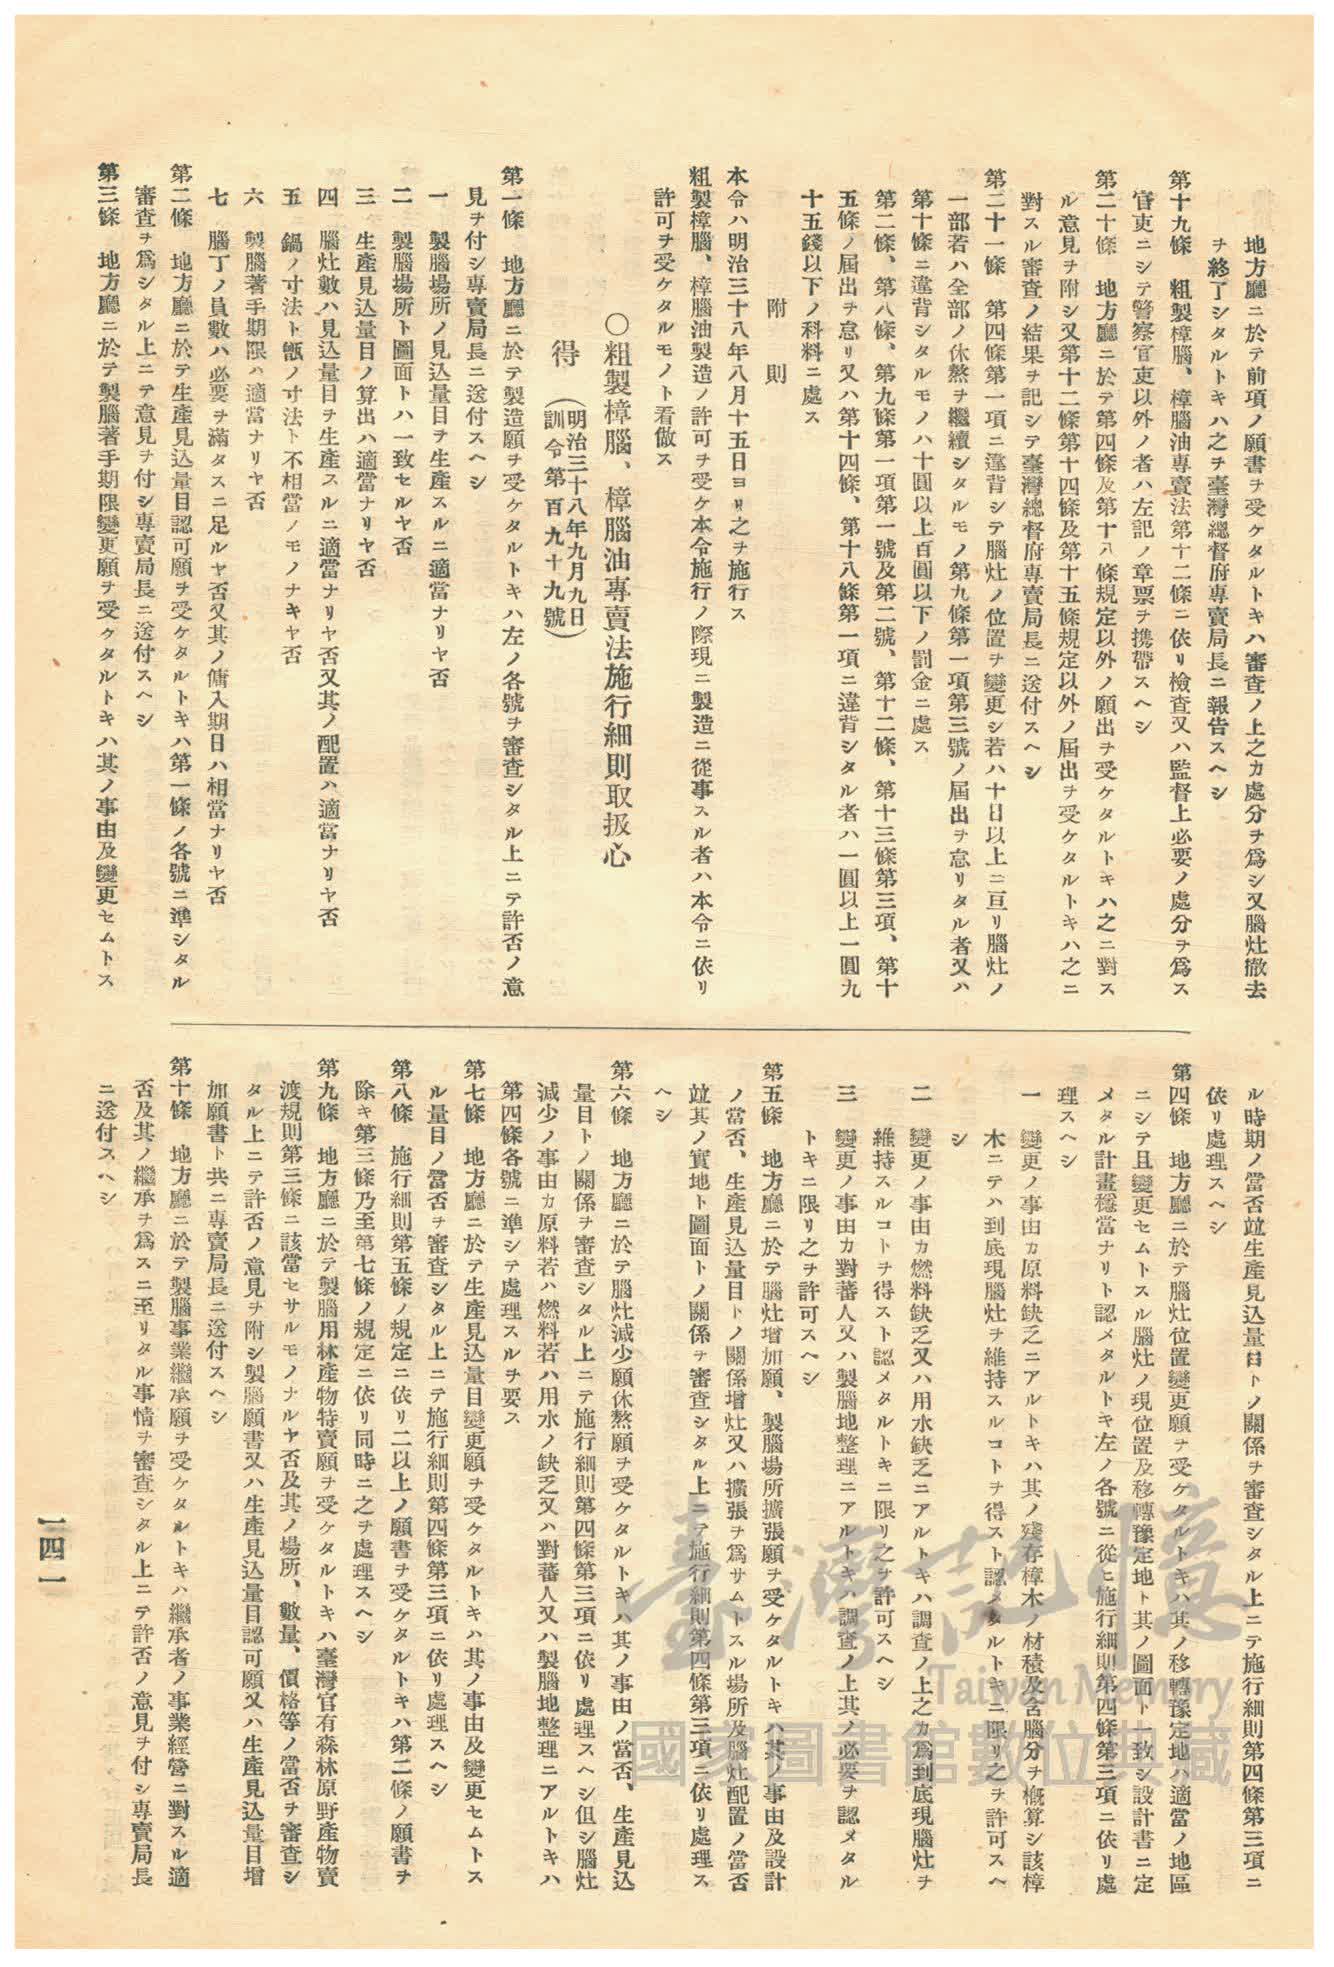 地方廳ニ於テ前項ノ願書ヲ受ケタルトキハ審査ノ上之カ處分ヲ爲シ又腦灶撤去
ヲ終了シタルトキハ之ヲ臺灣總督府專賣局長ニ報告スヘシ
第十九條　粗製樟腦、樟腦油專賣法第十二條ニ依リ檢査又ハ監督上必要ノ處分ヲ爲ス
官吏ニシテ警察官吏以外ノ者ハ左記ノ章票ヲ携帶スヘシ
第二十條　地方廳ニ於テ第四條及第十八條規定以外ノ願出ヲ受ケタルトキハ之ニ對ス
ル意見ヲ附シ又第十二條第十四條及第十五條規定以外ノ屆出ヲ受ケタルトキハ之ニ
對スル審査ノ結果ヲ記シテ臺灣總督府專賣局長ニ送付スヘシ
第二十一條　第四條第一項ニ違背シテ腦灶ノ位置ヲ變更シ若ハ十日以上ニ亘リ腦灶ノ
一部若ハ全部ノ休熬ヲ繼續シタルモノ第九條第一項第三號ノ屆出ヲ怠リタル者又ハ
第十條ニ違背シタルモノハ十圓以上百圓以下ノ罰金ニ處ス
第二條、第八條、第九條第一項第一號及第二號、第十二條、第十三條第三項、第十
五條ノ屆出ヲ怠リ又ハ第十四條、第十八條第一項ニ違背シタル者ハ一圓以上一圓九
十五錢以下ノ科料ニ處ス
附　則
本令ハ明治三十八年八月十五日ヨリ之ヲ施行ス
粗製樟腦、樟腦油製造ノ許可ヲ受ケ本令施行ノ際現ニ製造ニ從事スル者ハ本令ニ依リ
許可ヲ受ケタルモノト看做ス
〇粗製樟腦、樟腦油專賣法施行細則取扱心
得（明治三十八年九月九日
訓令第百九十九號）
第一條　地方廳ニ於テ製造願ヲ受ケタルトキハ左ノ各號ヲ審査シタル上ニテ許否ノ意
見ヲ付シ專賣局長ニ送付スヘシ
一　製腦場所ノ見込量目ヲ生產スルニ適當ナリヤ否
二　製腦場所ト圖面トハ一致セルヤ否
三　生產見込量目ノ算出ハ適當ナリヤ否
四　腦灶數ハ見込量目ヲ生產スルニ適當ナリヤ否又其ノ配置ハ適當ナリヤ否
五　鍋ノ寸法ト甑ノ寸法ト不相當ノモノナキヤ否
六　製腦著手期限ハ適當ナリヤ否
七　腦丁ノ員數ハ必要ヲ滿タスニ足ルヤ否又其ノ傭入期日ハ相當ナリヤ否
第二條　地方廳ニ於テ生產見込量目認可願ヲ受ケタルトキハ第一條ノ各號ニ準シタル
審査ヲ爲シタル上ニテ意見ヲ付シ專賣局長ニ送付スヘシ
第三條　地方廳ニ於テ製腦著手期限變更願ヲ受ケタルトキハ其ノ事由及變更セムトス
ル時期ノ當否竝生產見込量目トノ關係ヲ審査シタル上ニテ施行細則第四條第三項ニ
依リ處理スヘシ
第四條　地方廳ニ於テ腦灶位置變更願ヲ受ケタルトキハ其ノ移轉豫定地ハ適當ノ地區
ニシテ且變更セムトスル腦灶ノ現位置及移轉豫定地ト其ノ圖面ト一致シ設計書ニ定
メタル計畫穩當ナリト認メタルトキ左ノ各號ニ從ヒ施行細則第四條第三項ニ依リ處
理スヘシ
一　變更ノ事由カ原料缺乏ニアルトキハ其ノ殘存樟木ノ材積及含腦分ヲ槪算シ該樟
木ニテハ到底現腦灶ヲ維持スルコトヲ得スト認メタルトキニ限リ之ヲ許可スヘ
シ
二　變更ノ事由カ燃料缺乏又ハ用水缺乏ニアルトキハ調査ノ上之カ爲到底現腦灶ヲ
維持スルコトヲ得スト認メタルトキニ限リ之ヲ許可スヘシ
三　變更ノ事由カ對蕃人又ハ製腦地整理ニアルトキハ調査ノ上其ノ必要ヲ認メタル
トキニ限リ之ヲ許可スヘシ
第五條　地方廳ニ於テ腦灶增加願、製腦場所擴張願ヲ受ケタルトキハ其ノ事由及設計
ノ當否、生產見込量目トノ關係增灶又ハ擴張ヲ爲サムトスル場所及腦灶配置ノ當否
竝其ノ實地ト圖面トノ關係ヲ審査シタル上ニテ施行細則第四條第三項ニ依リ處理ス
ヘシ
第六條　地方廳ニ於テ腦灶減少願休熬願ヲ受ケタルトキハ其ノ事由ノ當否、生產見込
量目トノ關係ヲ審査シタル上ニテ施行細則第四條第三項ニ依リ處理スヘシ但シ腦灶
減少ノ事由カ原料若ハ燃料若ハ用水ノ缺乏又ハ對蕃人又ハ製腦地整理ニアルトキハ
第四條各號ニ準シテ處理スルヲ要ス
第七條　地方廳ニ於テ生產見込量目變更願ヲ受ケタルトキハ其ノ事由及變更セムトス
ル量目ノ當否ヲ審査シタル上ニテ施行細則第四條第三項ニ依リ處理スヘシ
第八條　施行細則第五條ノ規定ニ依リ二以上ノ願書ヲ受ケタルトキハ第二條ノ願書ヲ
除キ第三條乃至第七條ノ規定ニ依リ同時ニ之ヲ處理スヘシ
第九條　地方廳ニ於テ製腦用林產物特賣願ヲ受ケタルトキハ臺灣官有森林原野產物賣
渡規則第三條ニ該當セサルモノナルヤ否及其ノ場所、數量、價格等ノ當否ヲ審査シ
タル上ニテ許否ノ意見ヲ附シ製腦願書又ハ生產見込量目認可願又ハ生產見込量目增
加願書ト共ニ專賣局長ニ送付スヘシ
第十條　地方廳ニ於テ製腦事業繼承願ヲ受ケタルトキハ繼承者ノ事業經營ニ對スル適
否及其ノ繼承ヲ爲スニ至リタル事情ヲ審査シタル上ニテ許否ノ意見ヲ付シ專賣局長
ニ送付スヘシ
一四一
臺灣記憶
Taiwan Memory
國家圖書館數位典藏